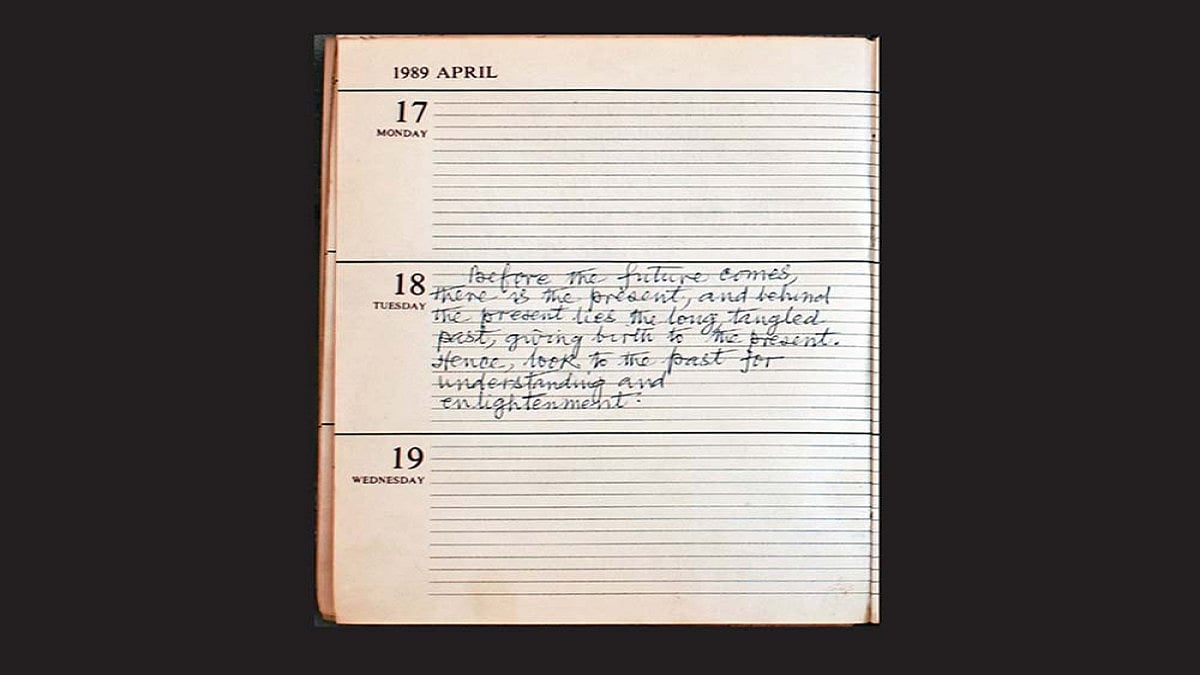 1989 APRIL
17
MONDAY
18
TUESDAY
Before the future comes,
there is the present, and behind
the present lies the long, tangled
past, giving birth to the present.
Hence, look to the past for
understanding and
enlightenment.
19
WEDNESDAY